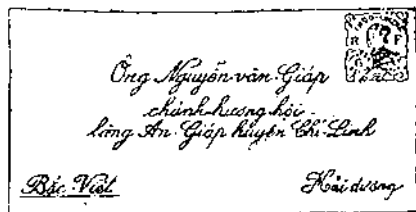 Ông Nguyễn-văn-Giáp
chánh-hương-hội
làng An-Giáp huyện Chí-Linh
Bắc-Việt
Hải dương
R F